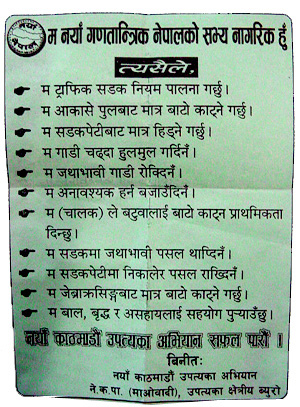 नयाँ
नेपाल
म नयाँ गणतान्त्रिक नेपालको सभ्य नागरिक हुँ
त्यसैले,
म ट्राफिक सडक नियम पालना गर्छु।
म आकासे पुलबाट मात्र बाटो काट्ने गर्छु।
म सडकपेटीबाट मात्र हिड्ने गर्छु।
म गाडी चढ्दा हुलमुल गर्दिनँ।
म जथाभावी गाडी रोक्दिनँ।
म अनावश्यक हर्न बजाउँदिनँ।
म (चालक) ले बटुवालाई बाटो काट्न प्राथमिकता
दिन्छु।
म सडकमा जथाभावी पसल थाप्दिनँ।
म सडकपेटीमा निकालेर पसल राख्दिनँ।
म जेब्राक्रसिङ्बाट मात्र बाटो काट्ने गर्छु।
म बाल, बृद्ध र असहायलाई सहयोग पुऱ्याउँछु।
नयाँ काठमाडौं उपत्यका अभियान सफल पारौं ।
बिनीतः
नयाँ काठमाडौं उपत्यका अभियान
ने.क.पा. (माओवादी), उपत्यका क्षेत्रीय ब्युरो